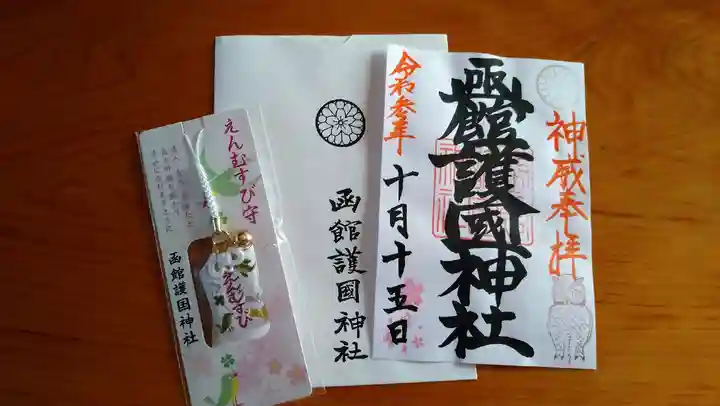 えんむすび守
函館護国神社
えんむすび
函館護國神社
神威奉拝
函館護國神社
令和参年
十月十五日